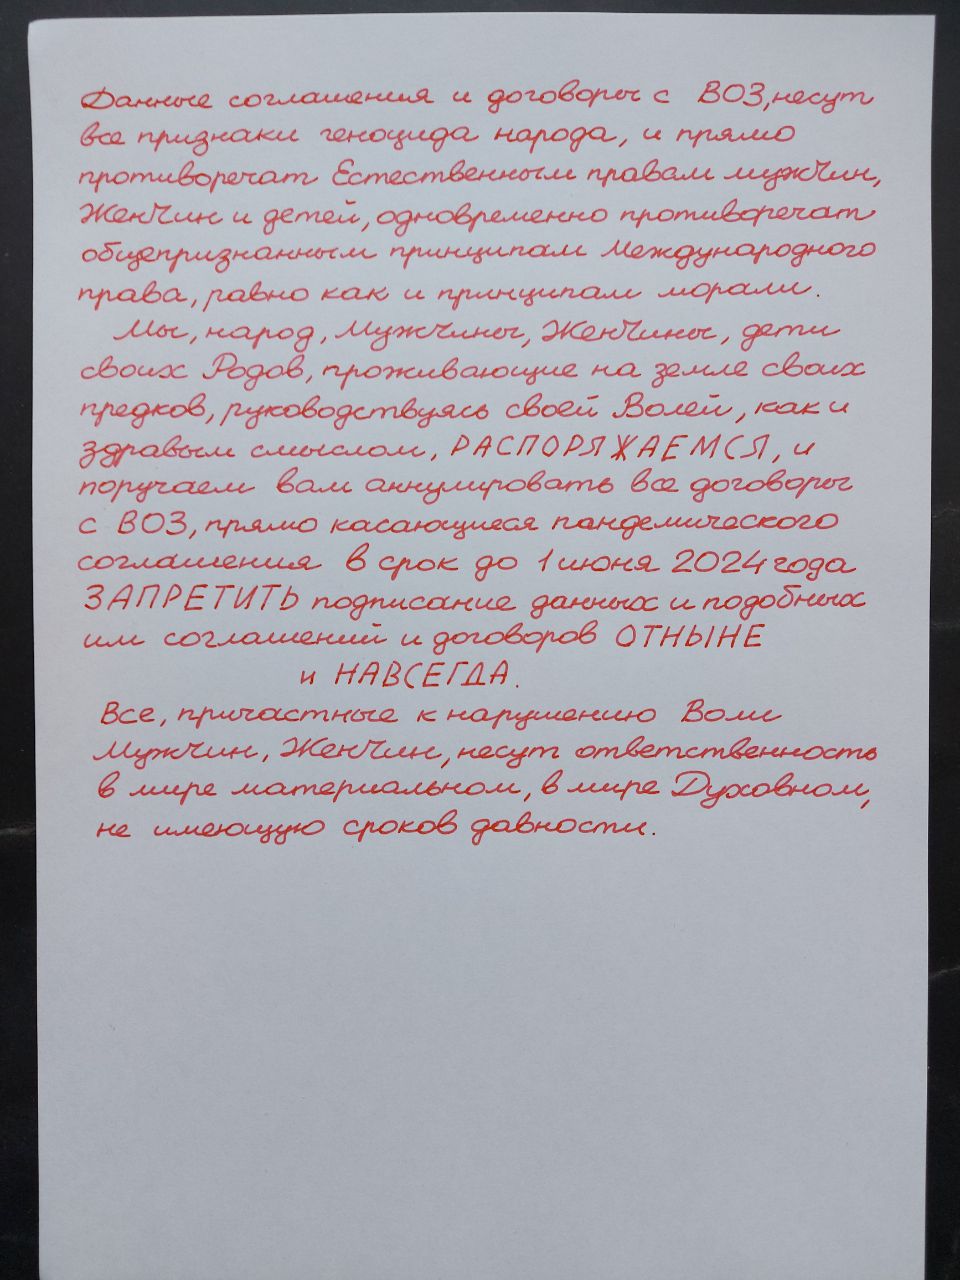 Данные соглашения и договоры с ВОЗ, несут
все признаки геноцида народа, и прямо
противоречат Естественным правам мужЧин,
ЖенЧин и детей, одновременно противоречат
общепризнанным принципам Международного
права, равно как и принципам морали.
Мы, народ, МужЧины, ЖенЧины, дети
своих Родов, проживающие на земле своих
предков, руководствуясь своей Волей, как и
здравым смыслом, РАСПОРЯЖАЕМСЯ, и
поручаем вам аннулировать все договоры
с ВОЗ, прямо касающиеся пандемического
соглашения в срок до 1 июня 2024 года
ЗАПРЕТИТЬ подписание данных и подобных
им соглашений и договоров ОТНЫНЕ
и НАВСЕГДА.
Все, причастные к нарушению Воли
МужЧин, ЖенЧин, несут ответственность
в мире материальном, в мире Духовном,
не имеющую сроков давности.